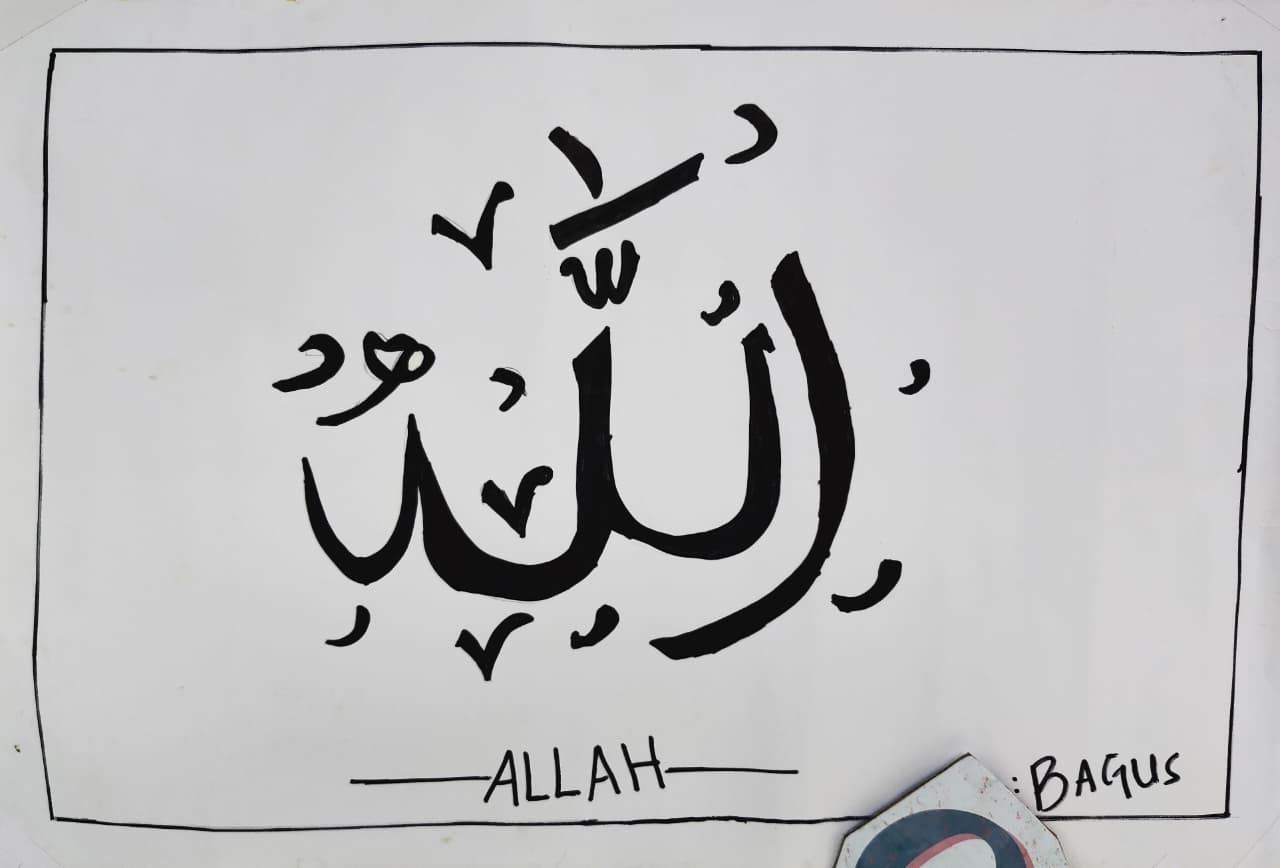 اللّٰه
ALLAH
: BAGUS